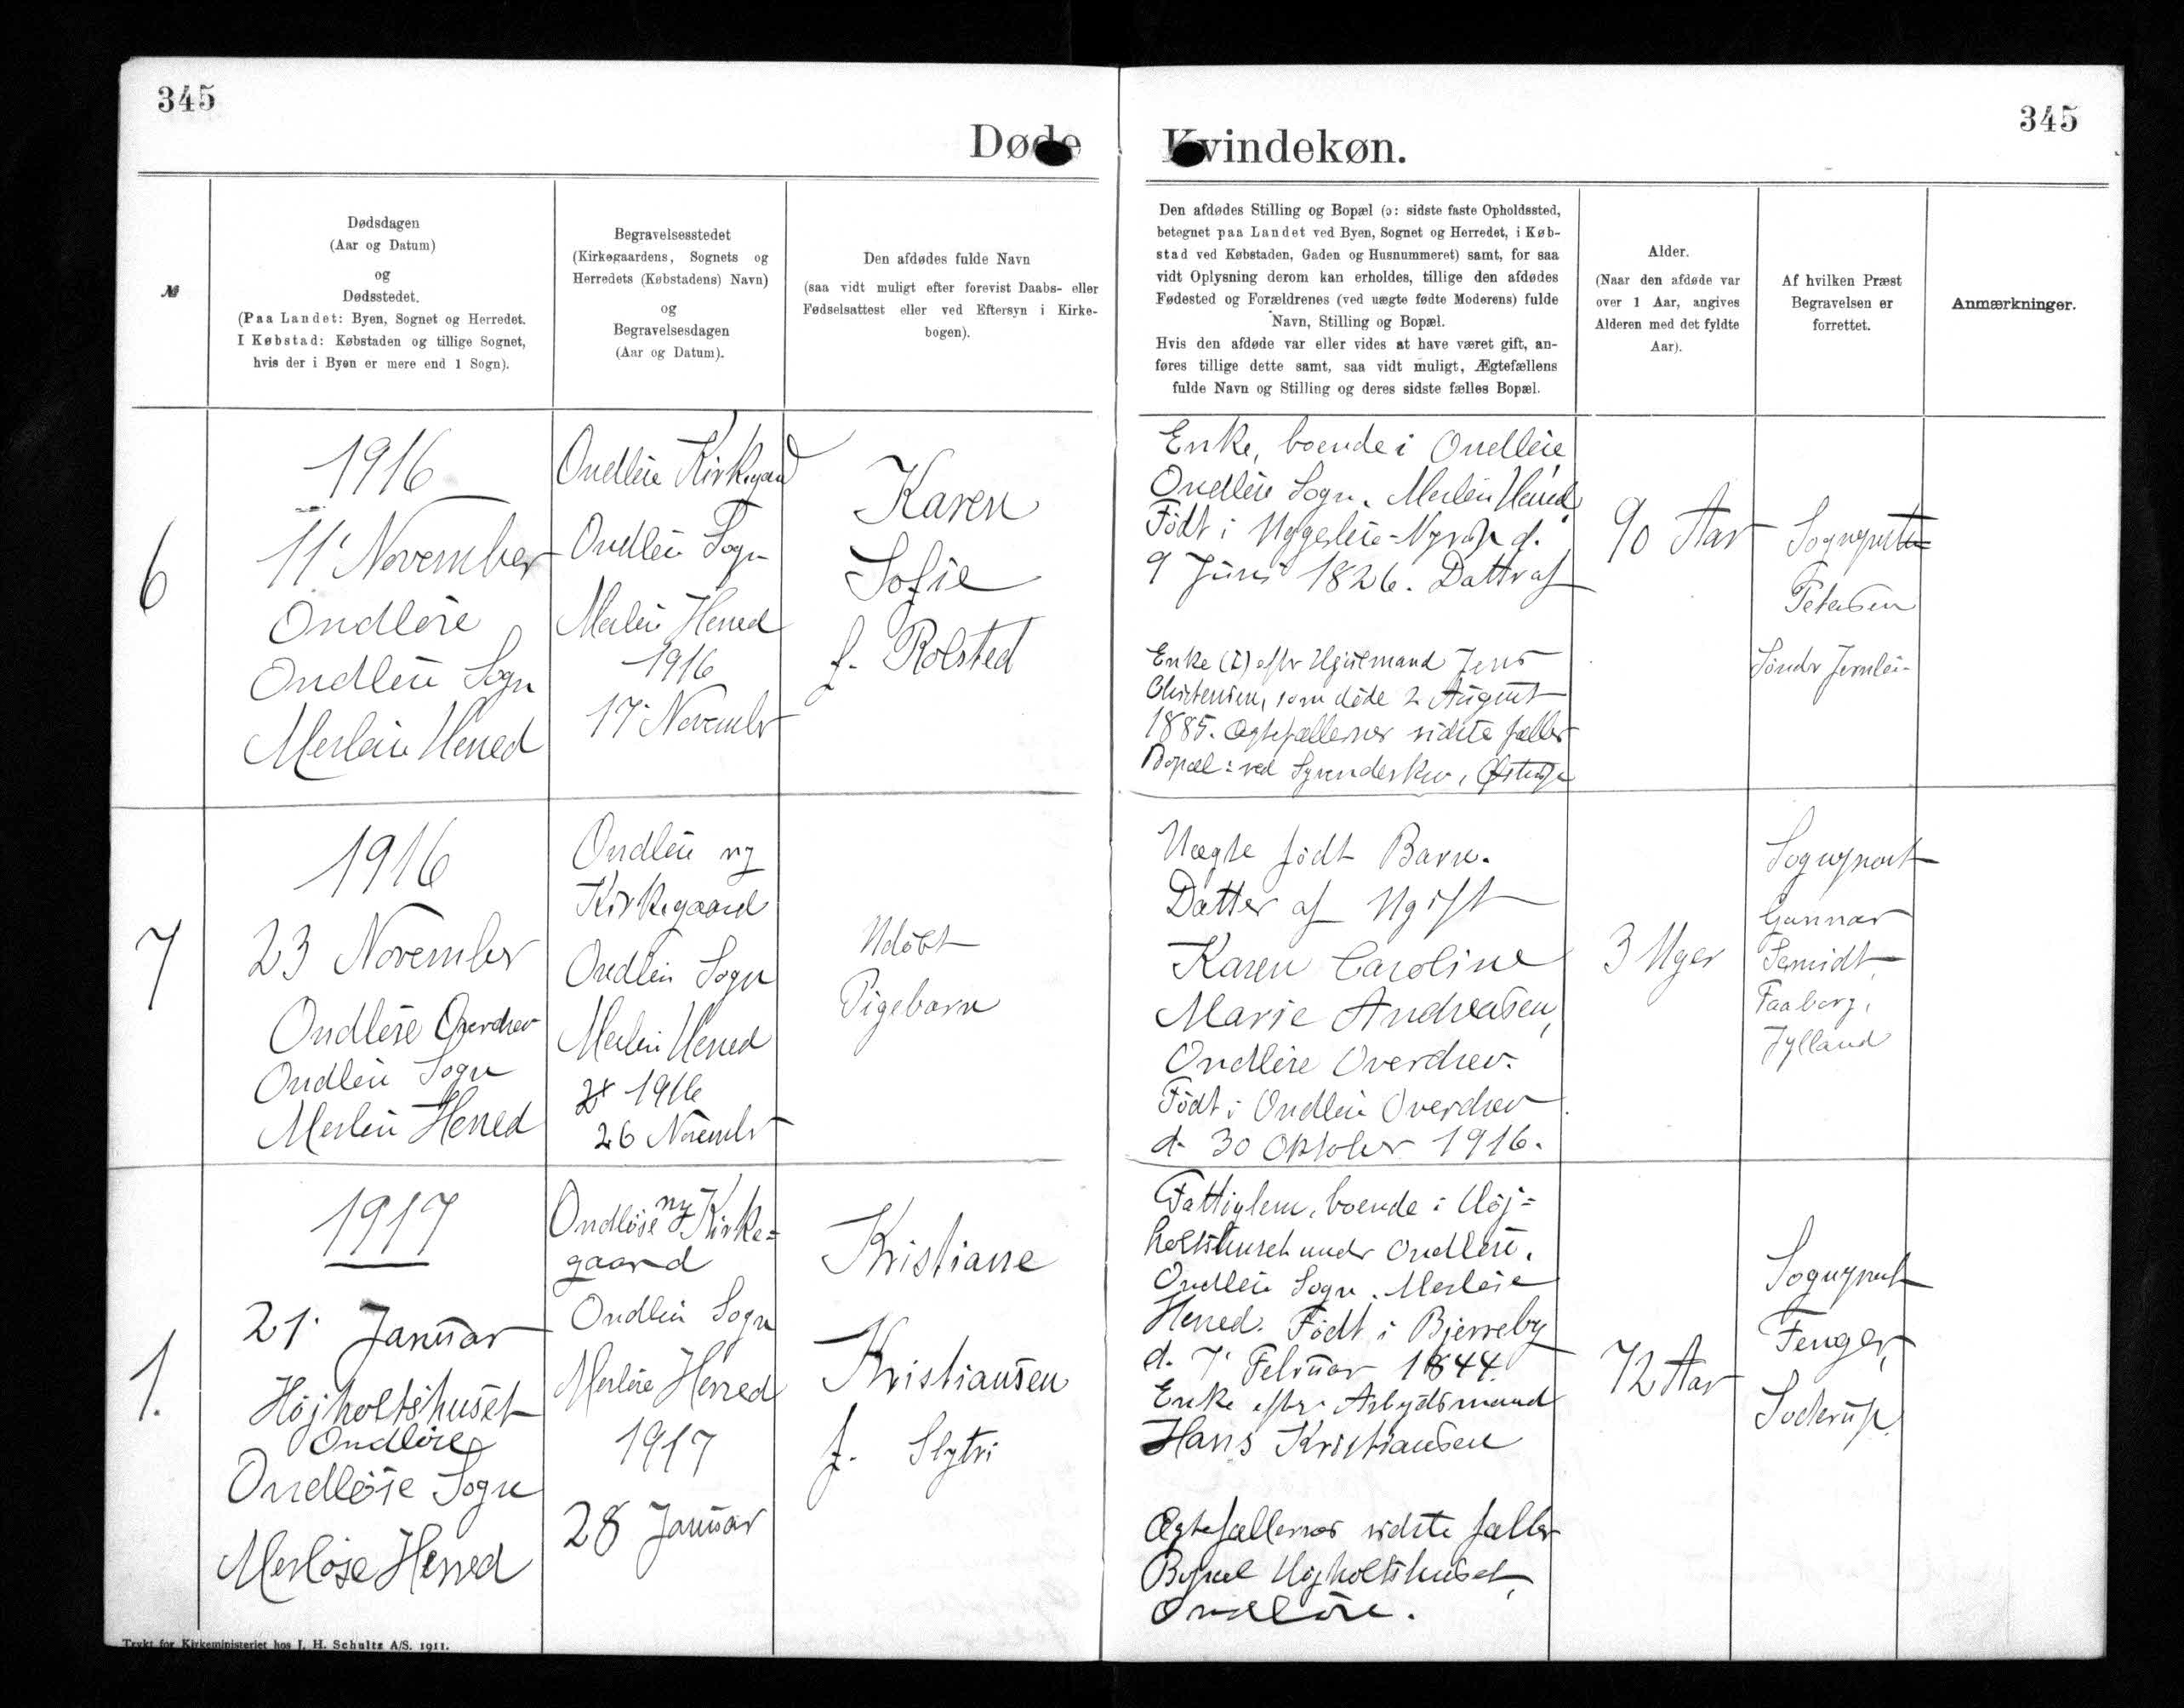 345
345
Døde
Kvindekøn.
№
Dødsdagen
(Aar og Datum)
og
Dødsstedet.
(Paa Landet: Byen, Sognet og Herredet.
I Købstad: Købstaden og tillige Sognet,
hvis der i Byen er mere end 1 Sogn).
Begravelsesstedet
(Kirkegaardens, Sognets og
Herredets (Købstadens) Navn)
og
Begravelsesdagen
(Aar og Datum).
Den afdødes fulde Navn
(saa vidt muligt efter forevist Daabs- eller
Fødselsattest eller ved Eftersyn i Kirke-
bogen).
Den afdødes Stilling og Bopæl (ɔ: sidste faste Opholdssted,
betegnet paa Landet ved Byen, Sognet og Herredet, i Køb-
stad ved Købstaden, Gaden og Husnummeret) samt, for saa
vidt Oplysning derom kan erholdes, tillige den afdødes
Fødested og Forældrenes (ved uægte fødte Moderens) fulde
Navn, Stilling og Bopæl.
Hvis den afdøde var eller vides at have været gift, an-
føres tillige dette samt, saa vidt muligt, Ægtefællens
fulde Navn og Stilling og deres sidste fælles Bopæl.
Alder.
(Naar den afdøde var
over 1 Aar, angives
Alderen med det fyldte
Aar).
Af hvilken Præst
Begravelsen er
forrettet.
Anmærkninger.
6
1916
11' November
Ondløse
Ondløse Sogn
Merløse Herred
Ondløse Kirkegaard
Ondløse Sogn
Merløse Herred
1916
17' November
Karen
Sofie
f. Rolsted
Enke, boende i Ondløse
Ondløse Sogn, Merløse Herred
Født i Uggerløse-Nyrup d.
9 Juni 1826. Datter af
Enke (2) efter Hjulmand Jens
Christensen, som døde 2 August
1885. Ægtefællernes sidste fælles
Bopæl: ved Syvendeskov, Østrup
90 Aar
Sognepræsten
Petersen
Sønder Jernløse
7
1916
23 November
Ondløse Overdrev
Ondløse Sogn
Merløse Herred
Ondløse ny
Kirkegaard
Ondløse Sogn
Merløse Herred
1916
26 November
Udøbt
Pigebarn
Uægte født Barn.
Datter af Ugift
Karen Caroline
Marie Andreasen,
Ondløse Overdrev.
Født i Ondløse Overdrev
d. 30 Oktober 1916.
3 Uger
Sognepræst
Gunnar
Semidt
Faaborg,
Jylland
1.
1917
21' Januar
Højholtshuset
Ondløse
Ondløse Sogn
Merløse Herred
Ondløse ny Kirke=
gaard
Ondløse Sogn
Merløse Herred
1917
28 Januar
Kristiane
Kristiansen
f. Slytri
Fattiglem, boende i Høj=
holtshuset under Ondløse,
Ondløse Sogn, Merløse
Herred. Født i Bjerreby
d. 7' Februar 1844.
Enke efter Arbejdsmand
Hans Kristiansen
Ægtefællernes sidste fælles
Bopæl Højholtshuset,
Ondløse.
72 Aar
Sognepræst
Fenger,
Søderup.
Trykt for Kirkeministeriet hos J. H. Schultz A/S. 1911.